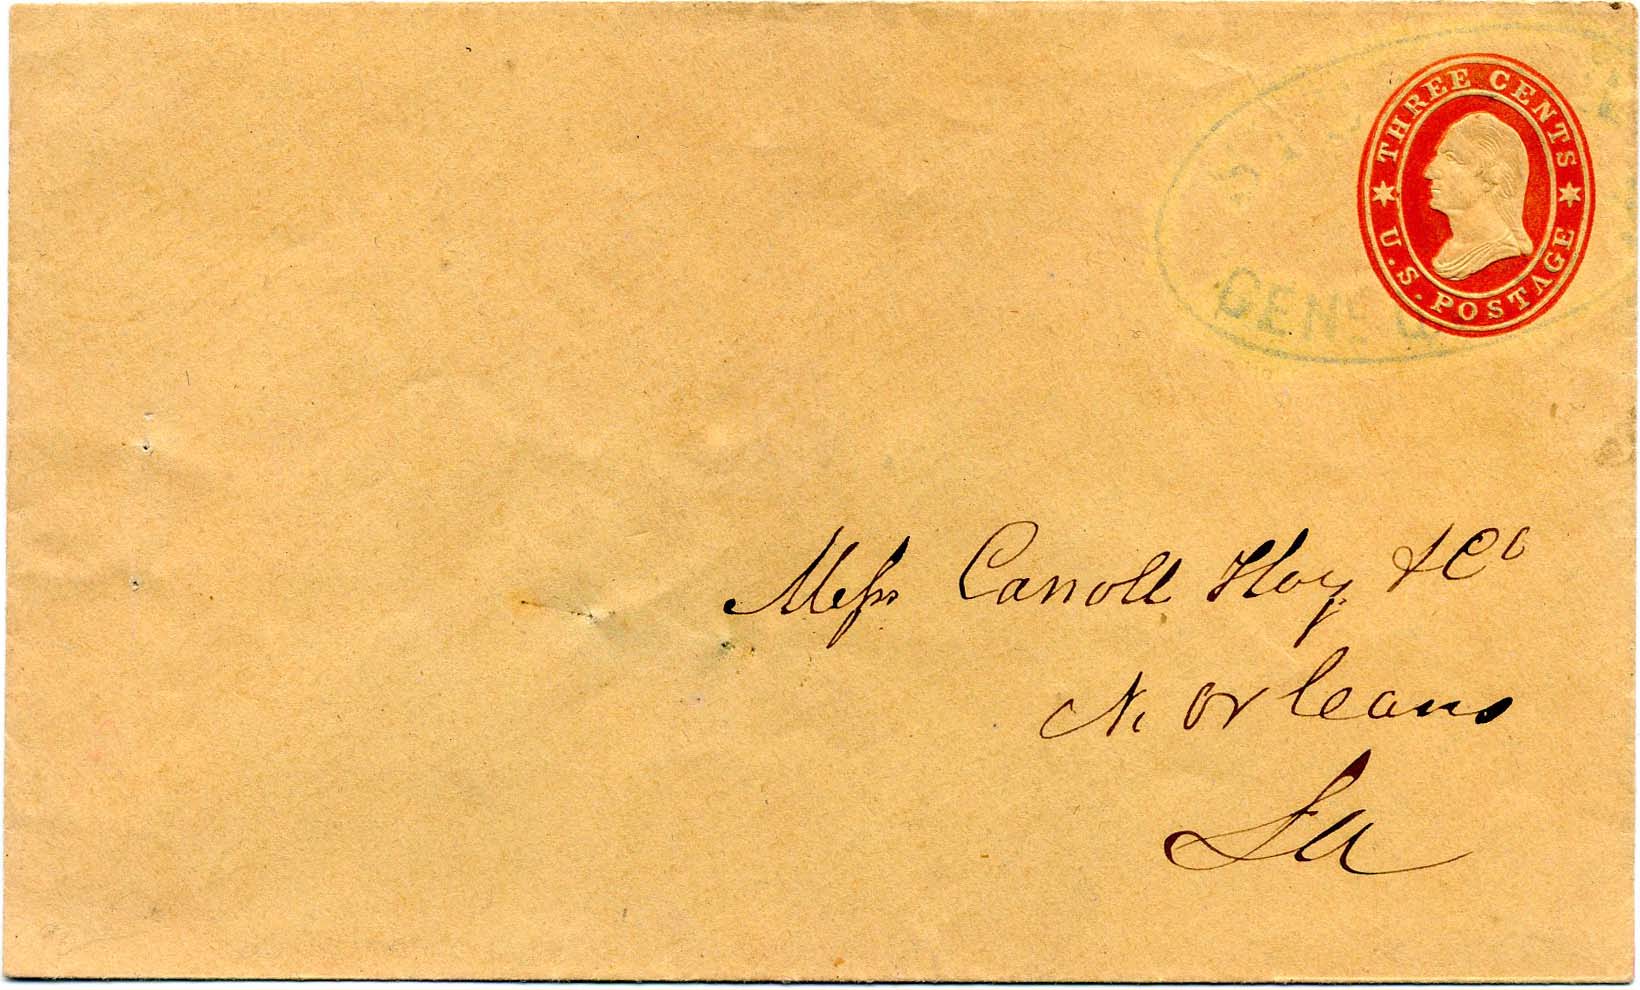 THREE CENTS
U.S. POSTAGE
GENL
Mess Carroll Hoy & Co
N. Orleans
La